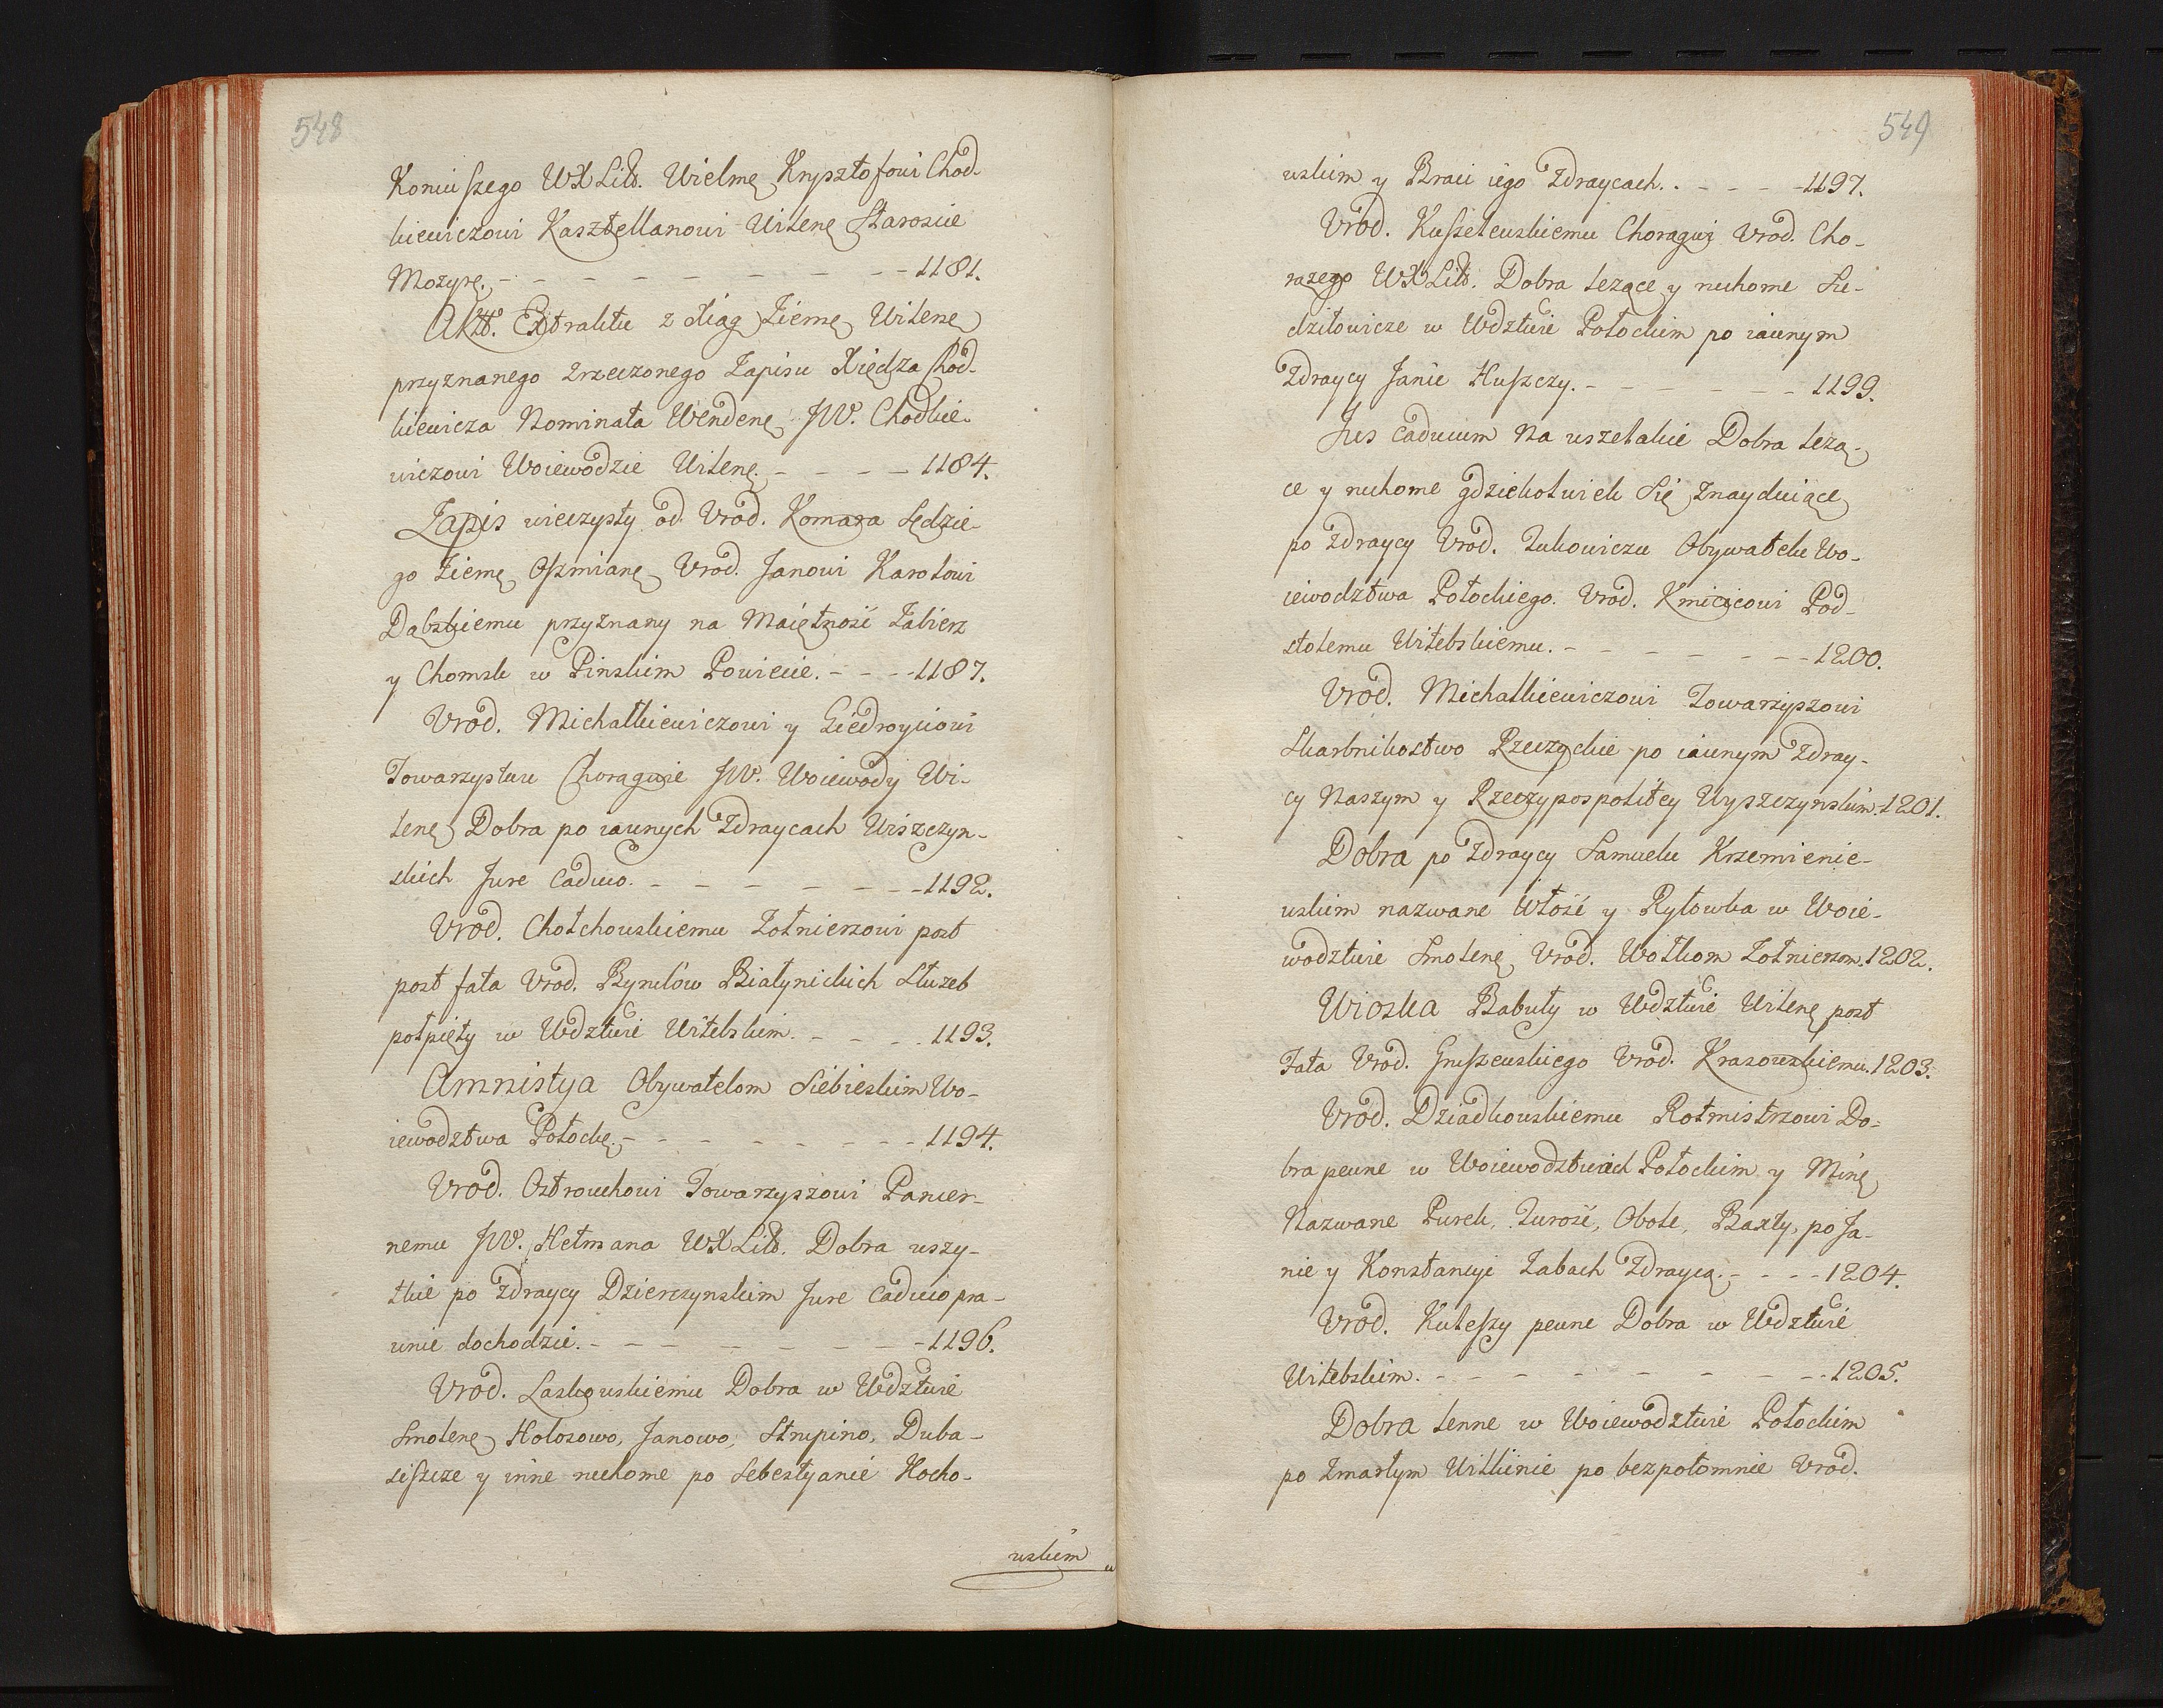 548
Koniuszego WXLitt. Wielmę Krysztofowi Chod-
kiewiczowi Kasztellanowi Wilenę Staroscie
Mozyrę. - - - - - - - - - 1181.
Aktt. Extraktu z Xiąg Ziemę Wilenę
przyznanego zrzeczonego Zapisu Xiędza Chod-
kiewicza Nominata Wendenę JW. Chodkie-
wiczowi Woiewodzie Wilenę. - - - - 1184.
Zapis wieczysty od Vrod. Komara Sędzie-
go Ziemę Oszmianę Vrod. Janowi Karolowi
Dąbskiemu przyznany na Maiętność Zabierz
y Chomsk w Pinskim Powiecie. - - - 1187.
Vrod. Michałkiewiczowi y Giedroyciowi
Towarzystwu Chorągwie JW. Woiewody Wi-
lenę Dobra po iawnych Zdraycach Wiszczyn-
skich Jure Caduco. - - - - - - - 1192.
Vrod. Chołchowskiemu Zołnierzowi post
post fata Vrod. Rynków Białynickich Służeb
połpięty w Wdztwie Witebskim. - - - - 1193.
Amnistya Obywatelom Siebieskim Wo-
iewodztwa Połockę. - - - - - - - - 1194.
Vrod. Ostrouchowi Towarzyszowi Pancer-
nemu JW. Hetmana WXLitt. Dobra wszy-
tkie po Zdraycy Dzierzynskim Jure Caduco pra-
wnie dochodzić. - - - - - - - 1196.
Vrod. Laskowskiemu Dobra w Wdztwie
Smolenę Holosowo, Janowo, Strupino, Duba-
siszcze y inne ruchome po Sebestyanie Kocho-
wskim
549
wskim y Braci iego Zdraycach. - - - - 1197.
Vrod. Kuszelewskiemu Chorągwi Vrod. Cho-
rązego WXLitt. Dobra lezące y ruchome Sie-
dziłowicze w Wdztwie Połockim po iawnym
Zdraycy Janie Huszczy. - - - - - - 1199.
Jus Caducum Na wszelakie Dobra lezą-
ce y ruchome gdziekolwiek Się Znayduiące
po Zdraycy Vrod. Zukowiczu Obywatelu Wo-
iewodztwa Połockiego. Vrod. Kmicicowi Pod-
stolemu Witebskiemu. - - - - - - - 1200.
Vrod. Michałkiewiczowi Towarzyszowi
Skarbnikostwo Rzeczyckie po iawnym Zdray-
cy Naszym y Rzeczypospolitey Wyszczynskim. 1201.
Dobra po Zdraycy Samuelu Krzemienie-
wskim nazwane Włość y Ryłowka w Woie-
wodztwie Smolenę Vrod. Wolkom Zołnierzom. 1202.
Wioska Babuły w Wdztwie Wilenę post
Fata Vrod. Gruszewskiego Vrod. Krasowskiemu. 1203.
Vrod. Dziadkowskiemu Rotmistrzowi Do-
bra pewne w Woiewodztwach Połockim y Minę
Nazwane Pureli, Zurość, Obole, Baxty, po Ja-
nie y Konstancyi Zabach Zdraycą. - - - - 1204.
Vrod. Kuleszy pewne Dobra w Wdztwie
Witebskim. - - - - - - - - - 1205.
Dobra lenne w Woiewodztwie Połockim
po Zmarłym Witkinie po bezpotomnie Vrod.